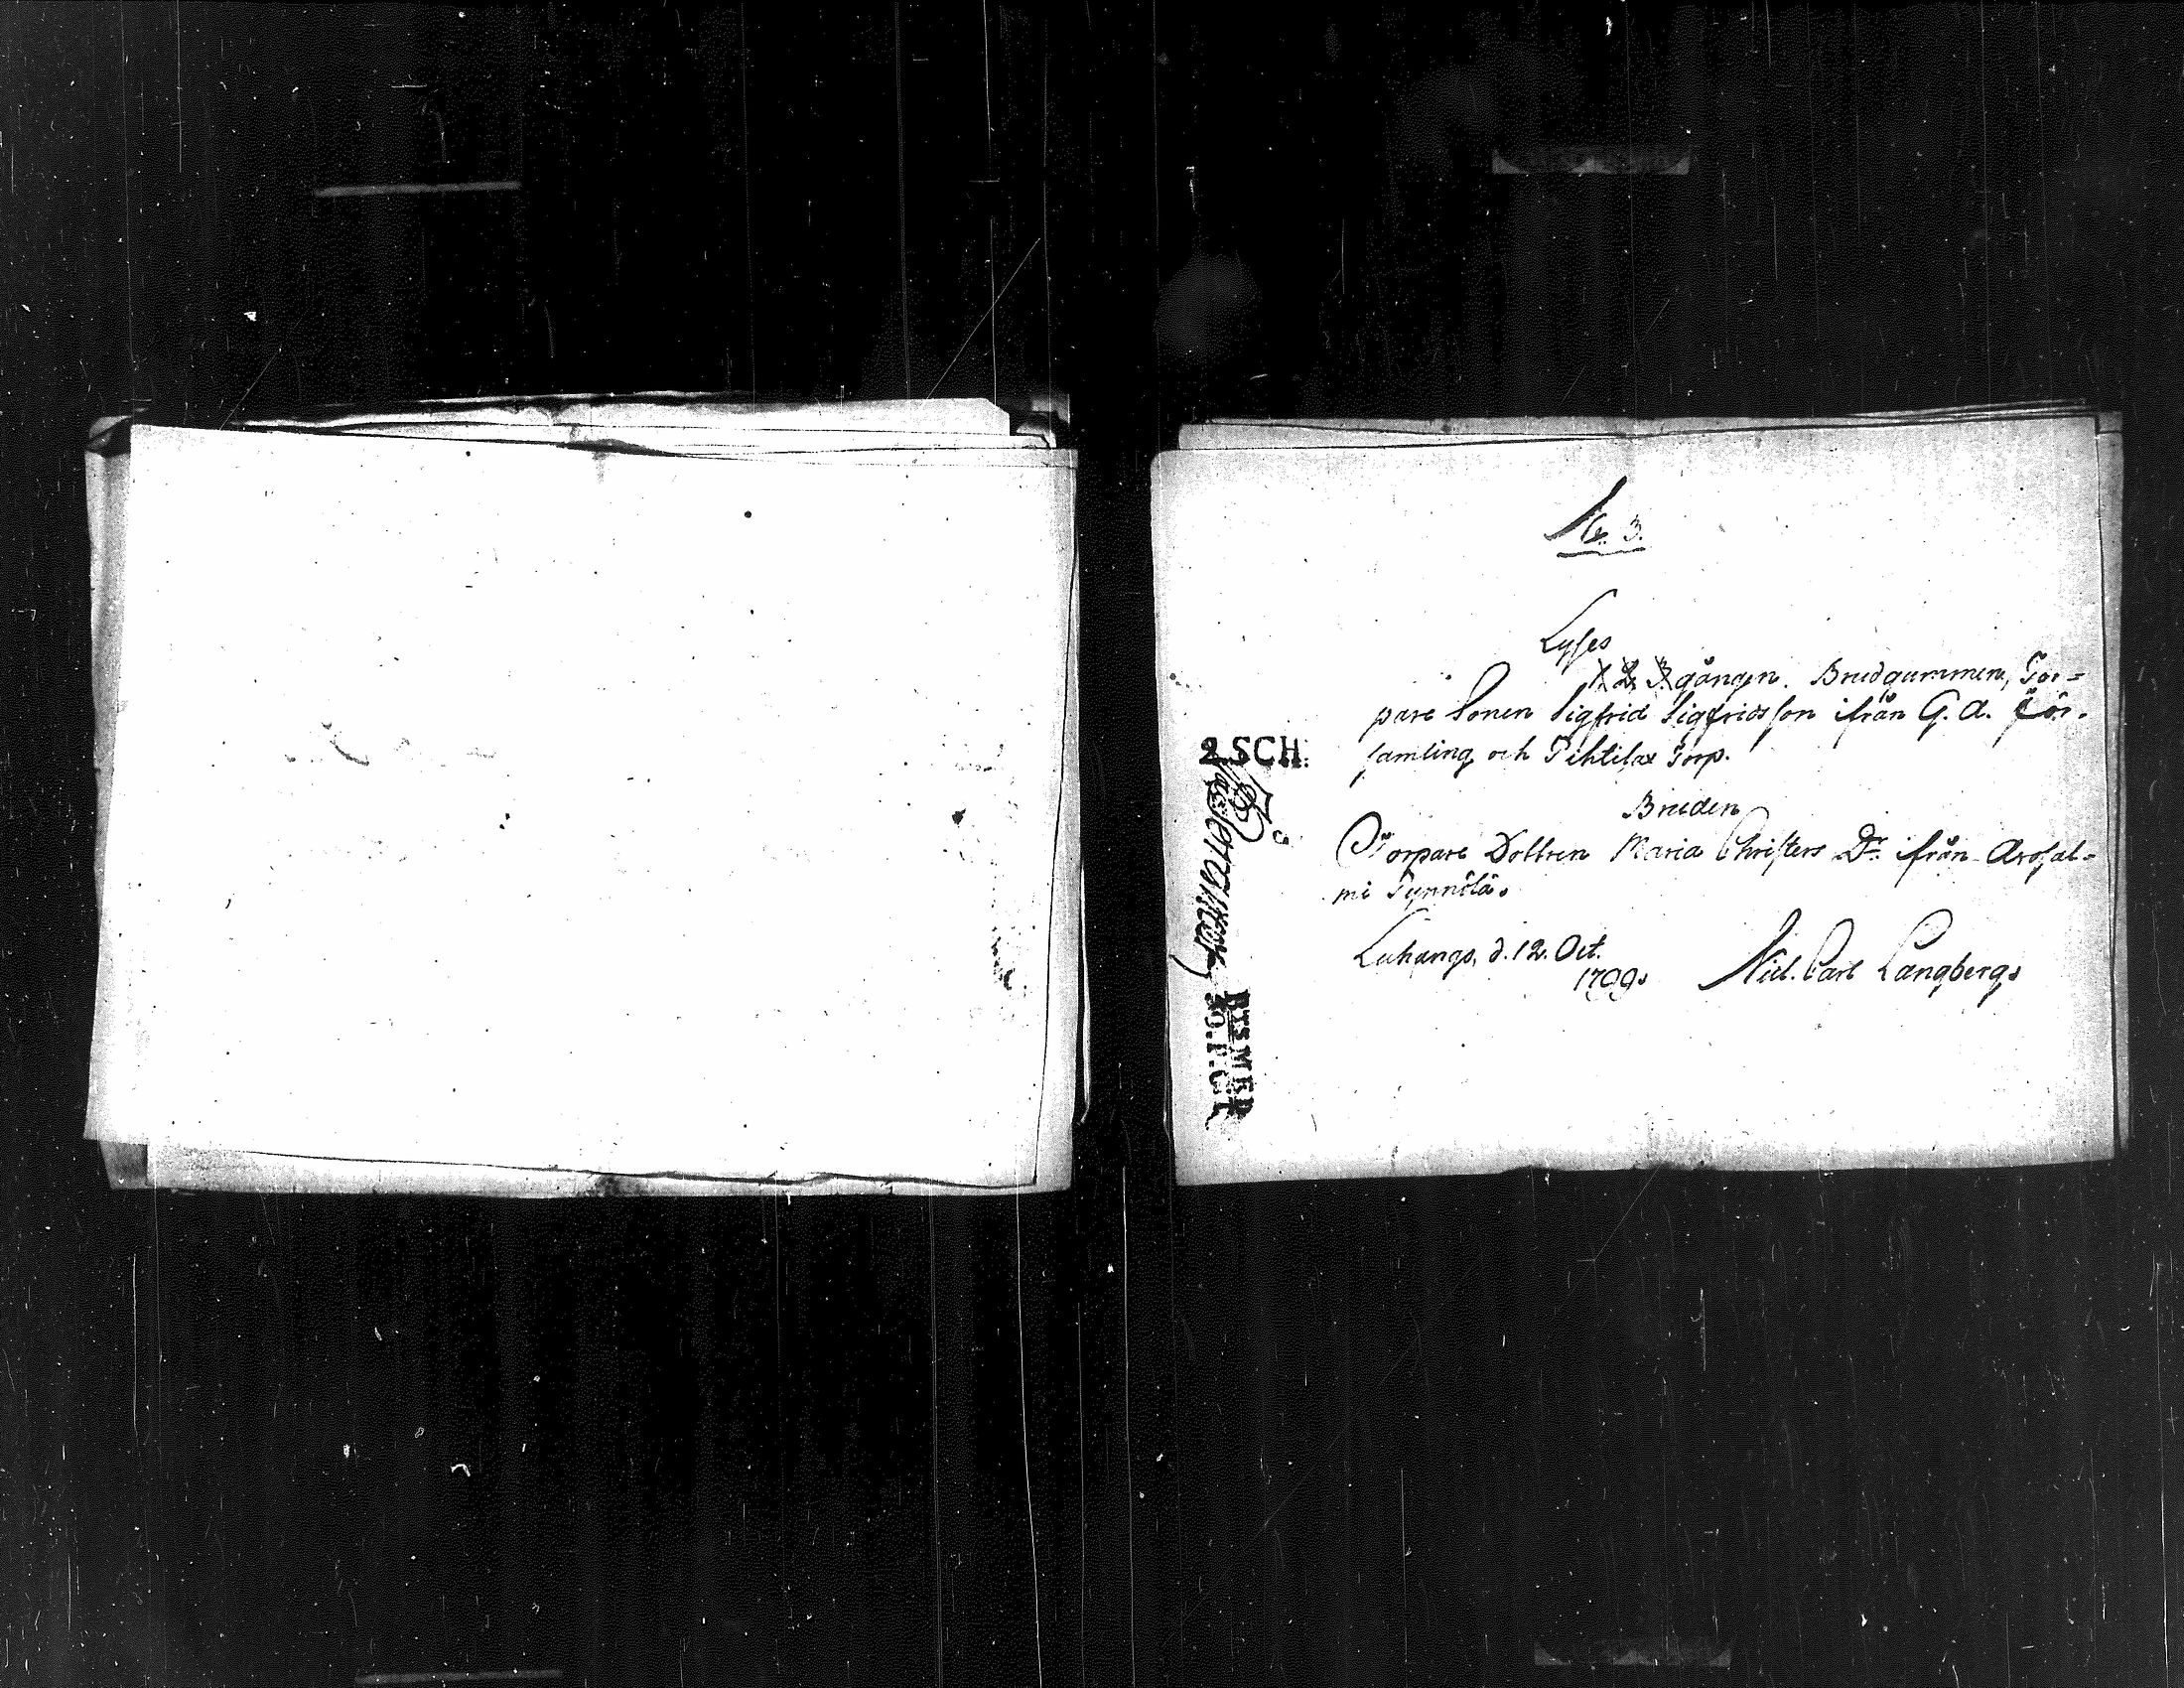 No. 3.
Lyses
1. 2. 3. gången. Brudgummen, Tor=
pare Sonen Sigfrid Sigfridsson ifrån G. A. För-
samling och Pihtilax Torp.
2 SCH.
Bruden
Torpare Dottren Maria Christers Dr. ifrån Arosal=
mi Tynnilä.
Luhango, d. 12. Oct.
1799.
Nicl. Carl Langberg.